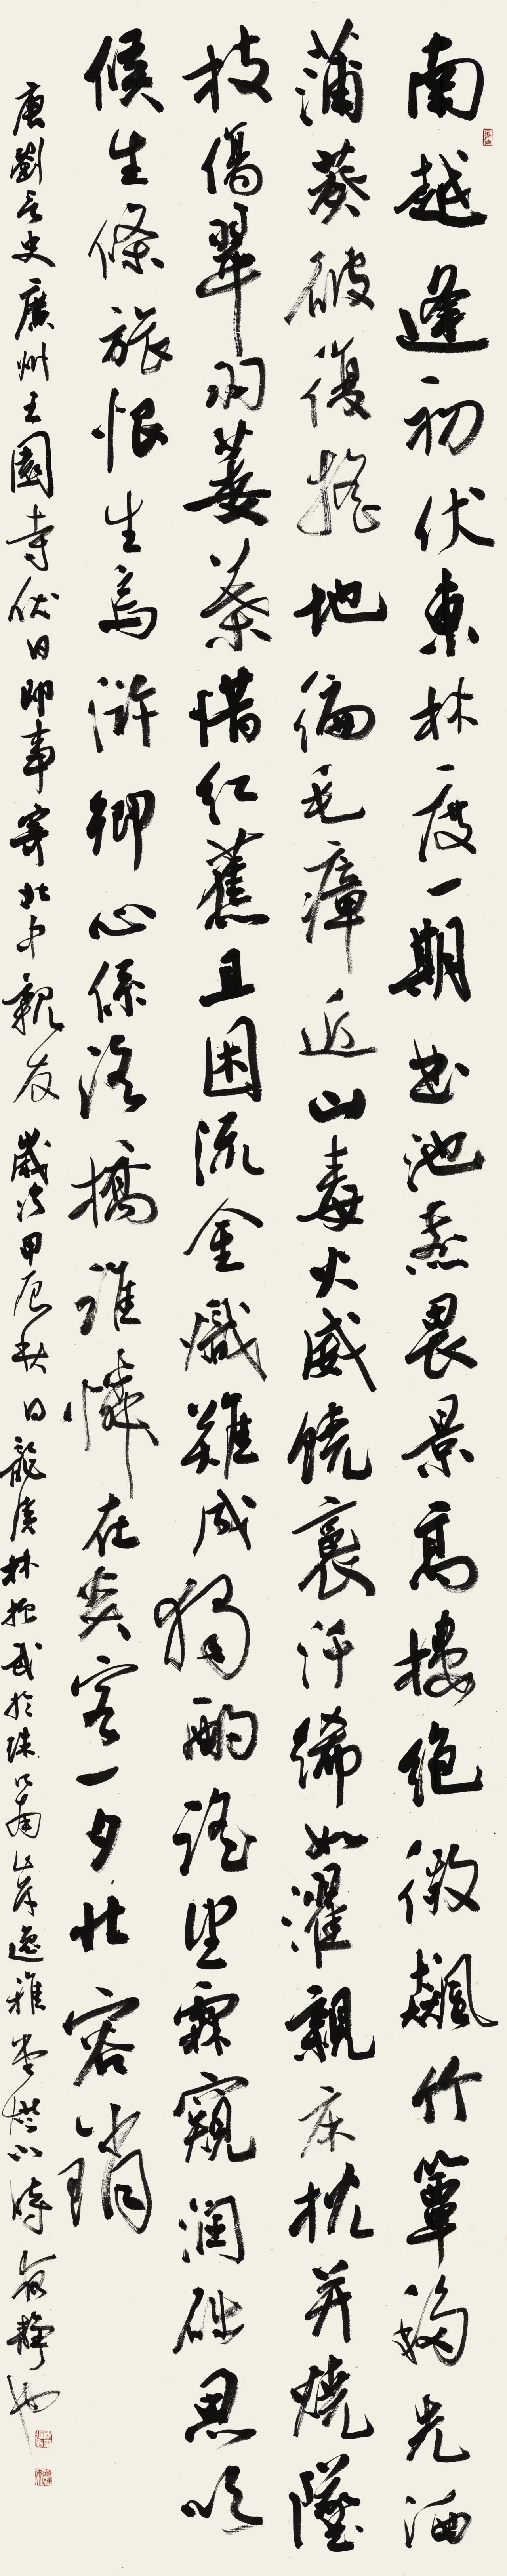 南越逢初伏東林度一期曲池煎畏景高樓絕微飆竹簟移先洒
蒲葵破復搖地偏毛瘴近山毒火威饒裛汗絺如濯親床枕并燒墜
枝傷翠羽萎葉惜紅蕉且困流金熾難成獨酌謠望霖窺潤礎思吹
候生條旅恨生烏滸鄉心係洛橋誰憐在炎客一夕壯容銷
唐劉言史廣州王園寺伏日即事寄北中親友 歲次甲辰秋日龍湊林振武於珠江南岸逸雅堂燈下時夜靜也